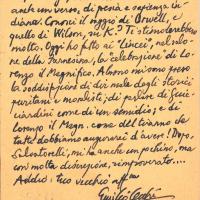 anch'universo, di pena e sapienza in-
diana. Conosci il saggio di Orwell, e
quello di Wilson, su K.? Ti stimolarebbero
molto. Oggi ho fatto ai "Lincei", nel salo-
ne della Farnesina, la celebrazione di Lo-
renzo il Magnifico. Almeno mi sono preso
la soddisfazione di dir male degli storici
puritani e moralisti; di parlare di Guic-
ciardini come di un semidio; e di
Lorenzo il Magn. come del tiranno che
tutti dobbiamo augurarci d'avere! Dopo,
Salvatorelli, mi ha anche un pochino, ma
con molta discrezione, rimproverato....
Addio. tuo vecchio aff.mo
Emilio Cecchi